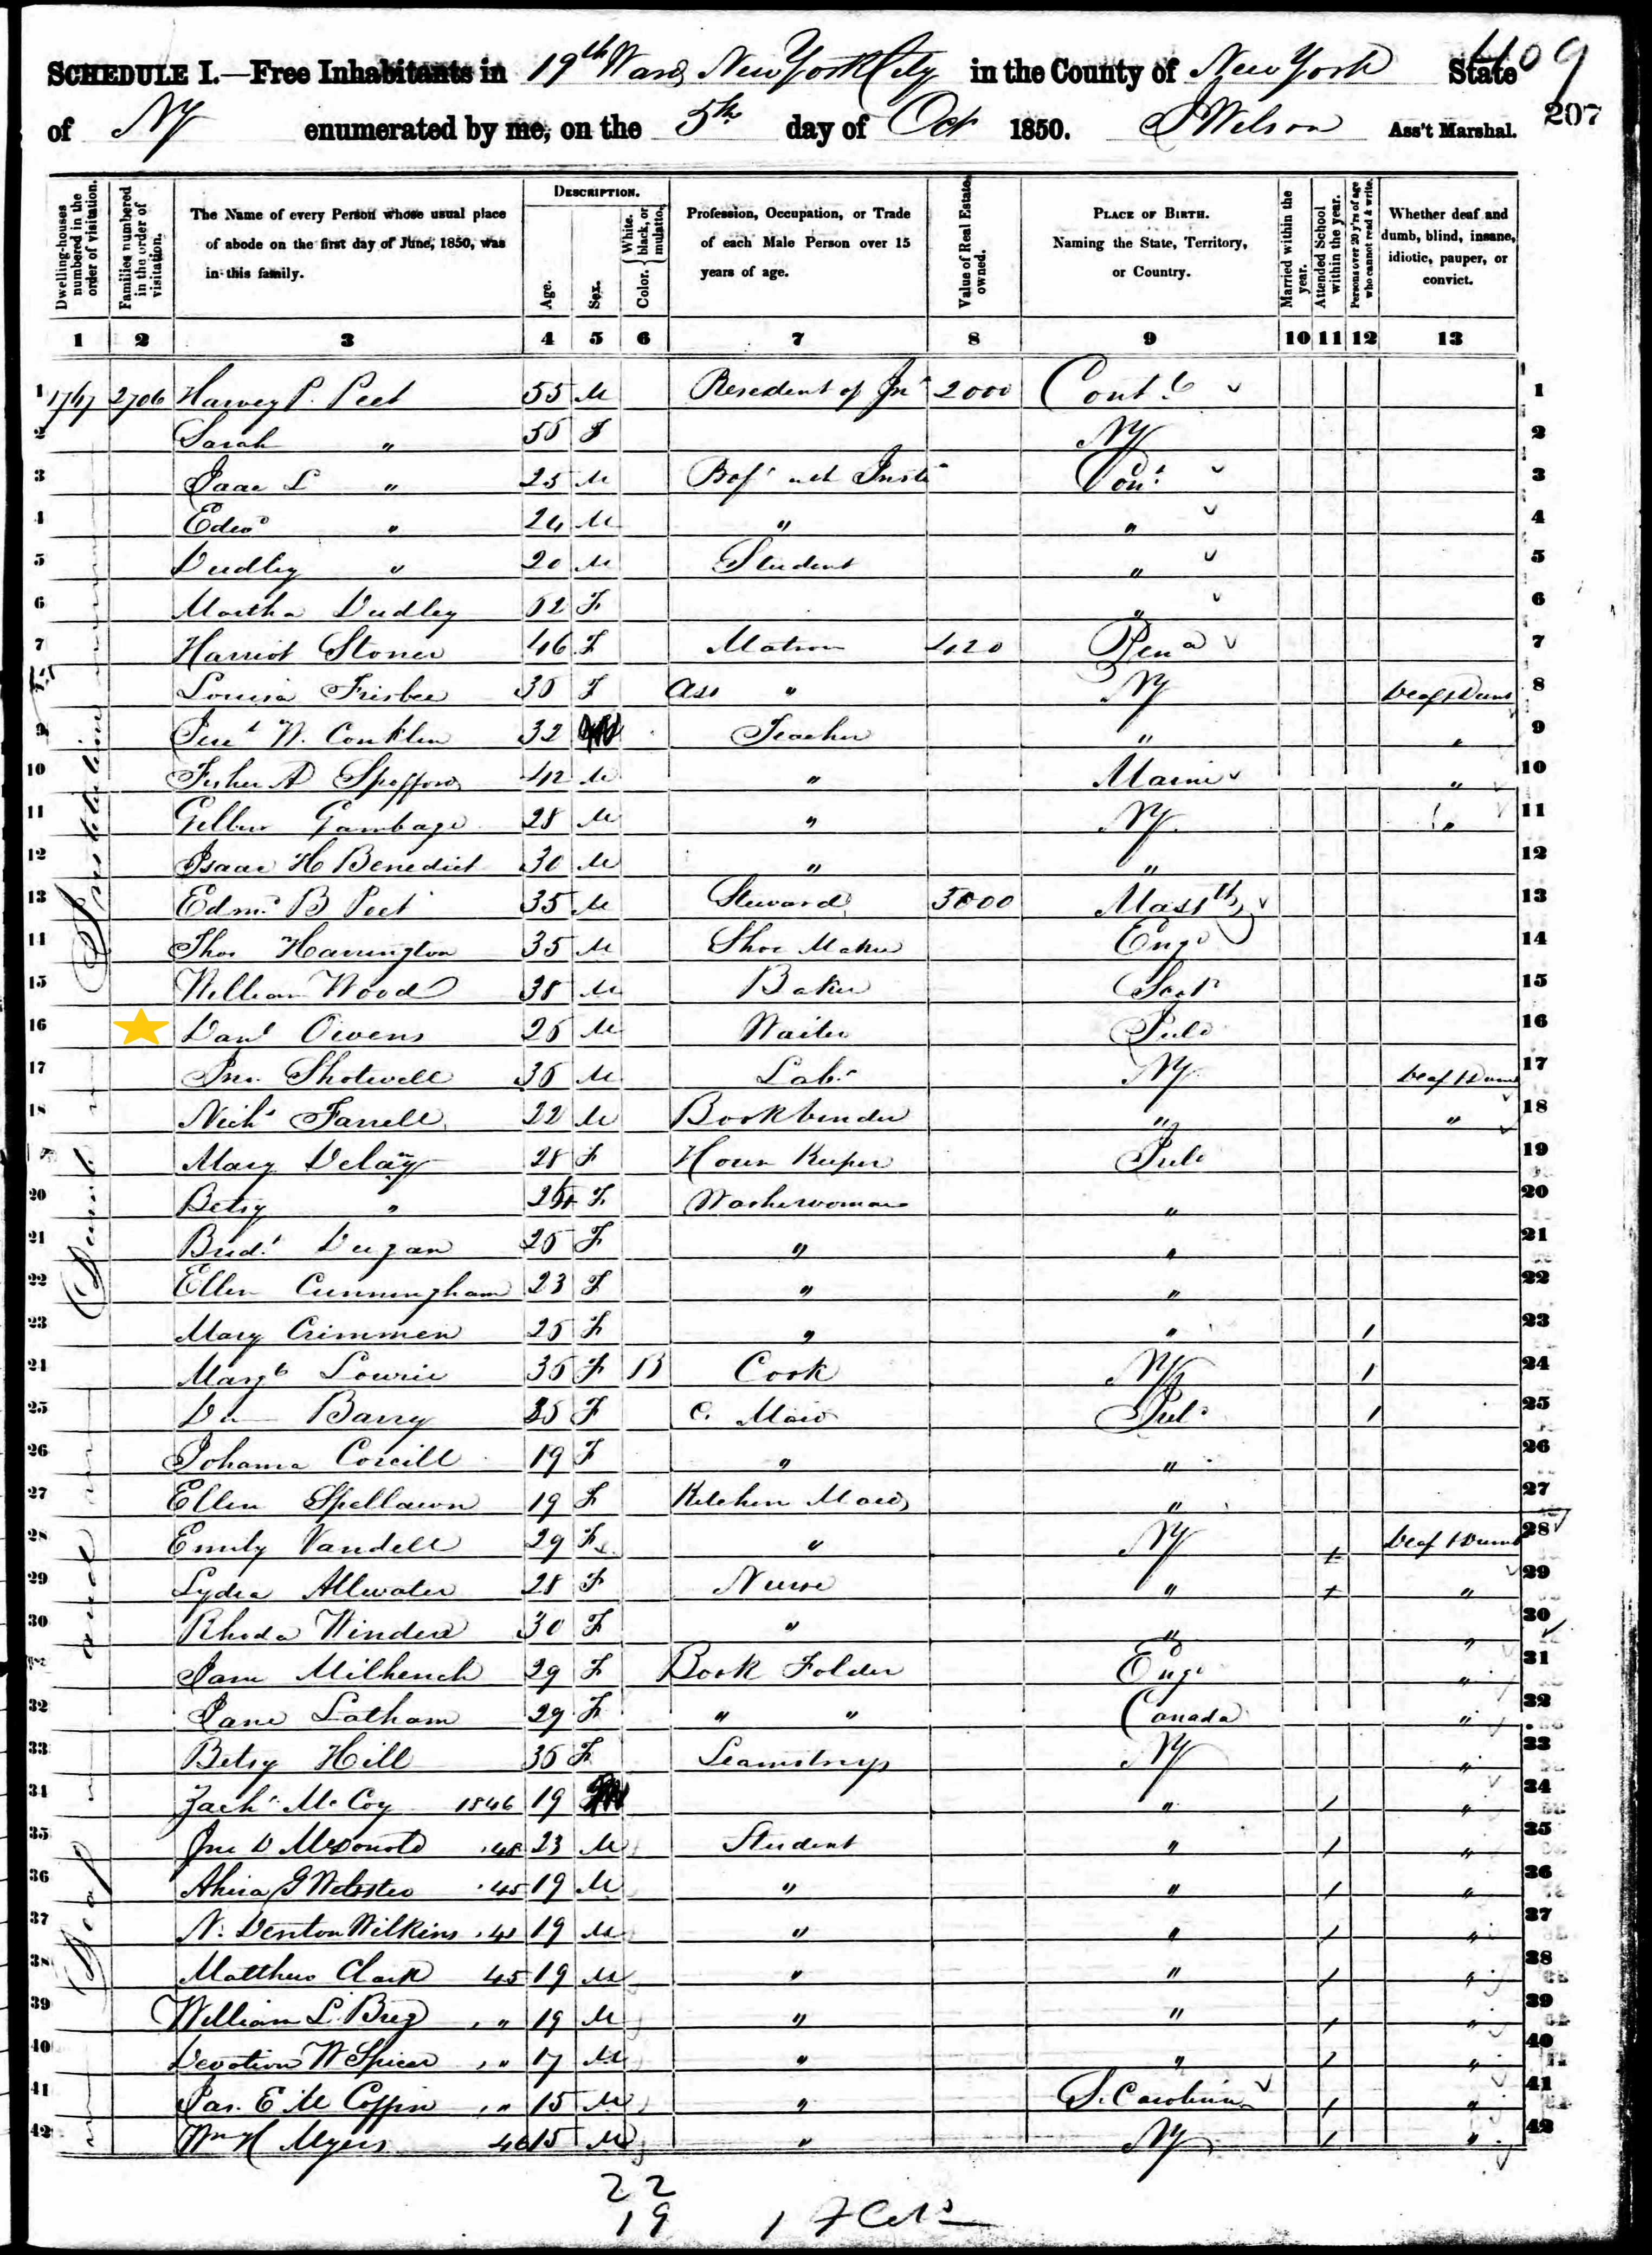 409
SCHEDULE I.—Free Inhabitants in 19th Ward New York City in the County of New York State
of NY enumerated by me, on the 5th day of Oct 1850. Wilson Ass't Marshal. 207
Dwelling-houses numbered in the order of visitation.
Families numbered in the order of visitation.
The Name of every Person whose usual place of abode on the first day of June, 1850, was in this family.
DESCRIPTION.
Age.
Sex.
Color. White, black, or mulatto.
Profession, Occupation, or Trade of each Male Person over 15 years of age.
Value of Real Estate owned.
PLACE OF BIRTH. Naming the State, Territory, or Country.
Married within the year.
Attended School within the year.
Persons over 20 y'rs of age who cannot read & write.
Whether deaf and dumb, blind, insane, idiotic, pauper, or convict.
1 2 3 4 5 6 7 8 9 10 11 12 13
Deaf and Dumb Institution
1 2706 Harvey P. Peet 55 M of 2000 1
2 Sarah " F NY 2
3 Isaac L " 25 M 3
4 Edwd " 24 M " " 4
5 Dudley " 20 M Student " 5
6 Martha Dudley F " 6
7 Harriot Stoner 46 F Matron 420 Pena 7
8 Louisa Frisbee F Ass " NY Deaf & Dumb 8
9 W. Conklin 32 Teacher " " 9
10 Fisher A Spofford 42 M " Maine " 10
11 28 M " NY " 11
12 Isaac H Benedict 30 M " " 12
13 Edmd B Peet 35 M Steward Massths 13
14 Thos Harrington 35 M Shoe Maker Engd 14
15 William Wood 38 M Baker Scot 15
16 Danl Owens M Waiter 16
17 Jno. Shotwell M Labr NY Deaf & Dumb 17
18 Nichs Farrell 22 M Bookbinder " " 18
19 Mary Delany 28 F House Keeper 19
20 Betsy " F Washerwoman " 20
21 Bridt Dugan F " " 21
22 Ellen Cunningham 23 F " " 22
23 Mary Crimmen F " " / 23
24 Margt Lowrie F B Cook NY / 24
25 Barry F C. Maid / 25
26 Johanna 19 F " " 26
27 Ellen 19 F Kitchen Maid " 27
28 Emily Vandell 29 F " NY Deaf & Dumb 28
29 Lydia Allwater 28 F Nurse " " 29
30 Rhoda 30 F " " " 30
29 F Book Folder Engd " 31
32 Jane Latham 29 F " " Canada " 32
33 Betsy Hill F Seamstress NY " 33
34 Zachr McCoy 1846 19 " / " 34
35 Jno D McDonold 48 23 M Student " / " 35
36 Ahira G Webster 45 19 M " " / " 36
37 N. Denton Wilkins 19 M " " / " 37
38 Matthew Clark 45 19 M " " / " 38
39 William L. " 19 M " " / " 39
40 Devotion W Spicer " 17 M " " / " 40
41 Jas. E M Coffin " 15 M " S. Carolina / " 41
42 Wm H Myers 46 15 M " NY / " 42
22
19